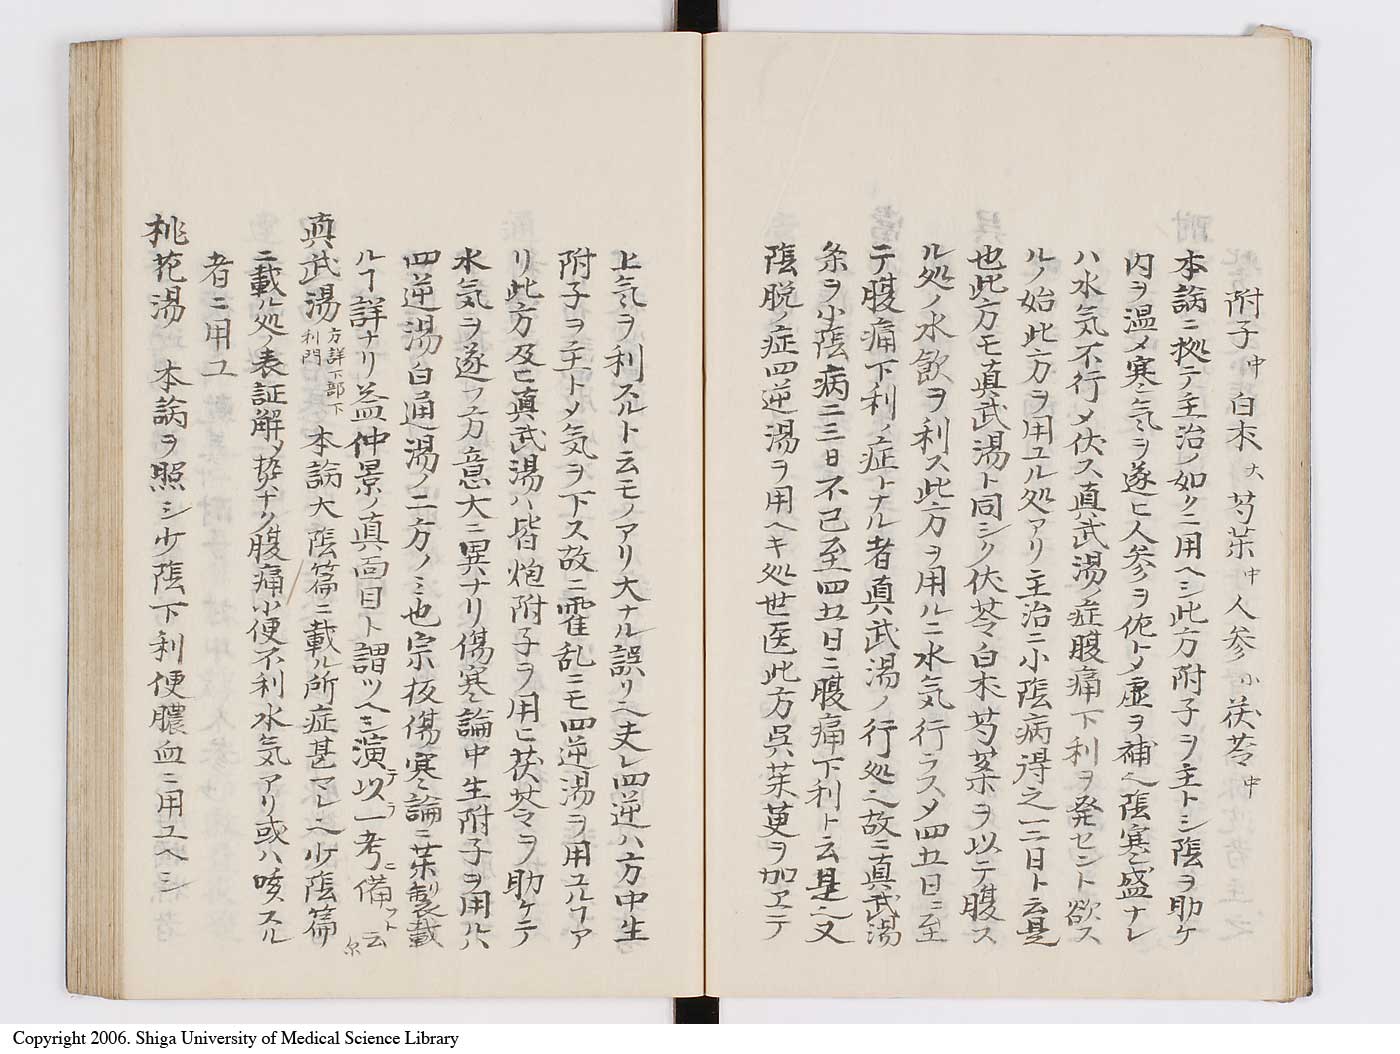 附子中白朮大芍薬中人参小茯苓中
本論ニ拠テ主治ノ如クニ用ヘシ此方附子ヲ主トシ陰ヲ助ケ
内ヲ温メ寒気ヲ逐ヒ人参ヲ佐トメ虚ヲ補ヘ陰寒盛ナレ
ハ水気不行メ伏ス真武湯ノ症腹痛下利ヲ発セント欲ス
ルノ始此方ヲ用ユル処アリ主治ニ小陰病得之一二日ト云是
也此方モ真武湯ト同シク伏苓白朮芍薬ヲ以テ腹ス
ル処ノ水飲ヲ利ス此方ヲ用ルニ水気行ラスメ四五日ニ至
テ腹痛下利ノ症トナル者真武湯ノ行処也故ニ真武湯
条ヲ小陰病二三日不已至四五日ニ腹痛下利ト云是也又
陰脱ノ症四逆湯ヲ用ヘキ処世医此方呉茱萸ヲ加ヱテ
上気ヲ利スルト云モノアリ大ナル誤リ也夫レ四逆ハ方中生
附子ヲ主トメ気ヲ下ス故ニ霍乱ニモ四逆湯ヲ用ユルヿア
リ此方及ヒ真武湯ハ皆炮附子ヲ用ヒ茯苓ヲ助ケテ
水気ヲ逐フ方意大ニ異ナリ傷寒論中生附子ヲ用ルハ
四逆湯白通湯ノ二方ノミ也宗板傷寒論ニ葉製リ載
ルヿ詳ナリ益仲景ノ真面目ト謂ツヘシ演以テ一考ニ備フト云爾
真武湯 方詳下部下利門 本論大陰篇ニ載ル所症甚マレ也少陰篇
ニ載ル処ノ表証解メ熱ナク腹痛小便不利水気アリ或ハ咳スル
者ニ用ユ
桃花湯 本論ヲ照シ少陰下利便膿血ニ用ユヘシ